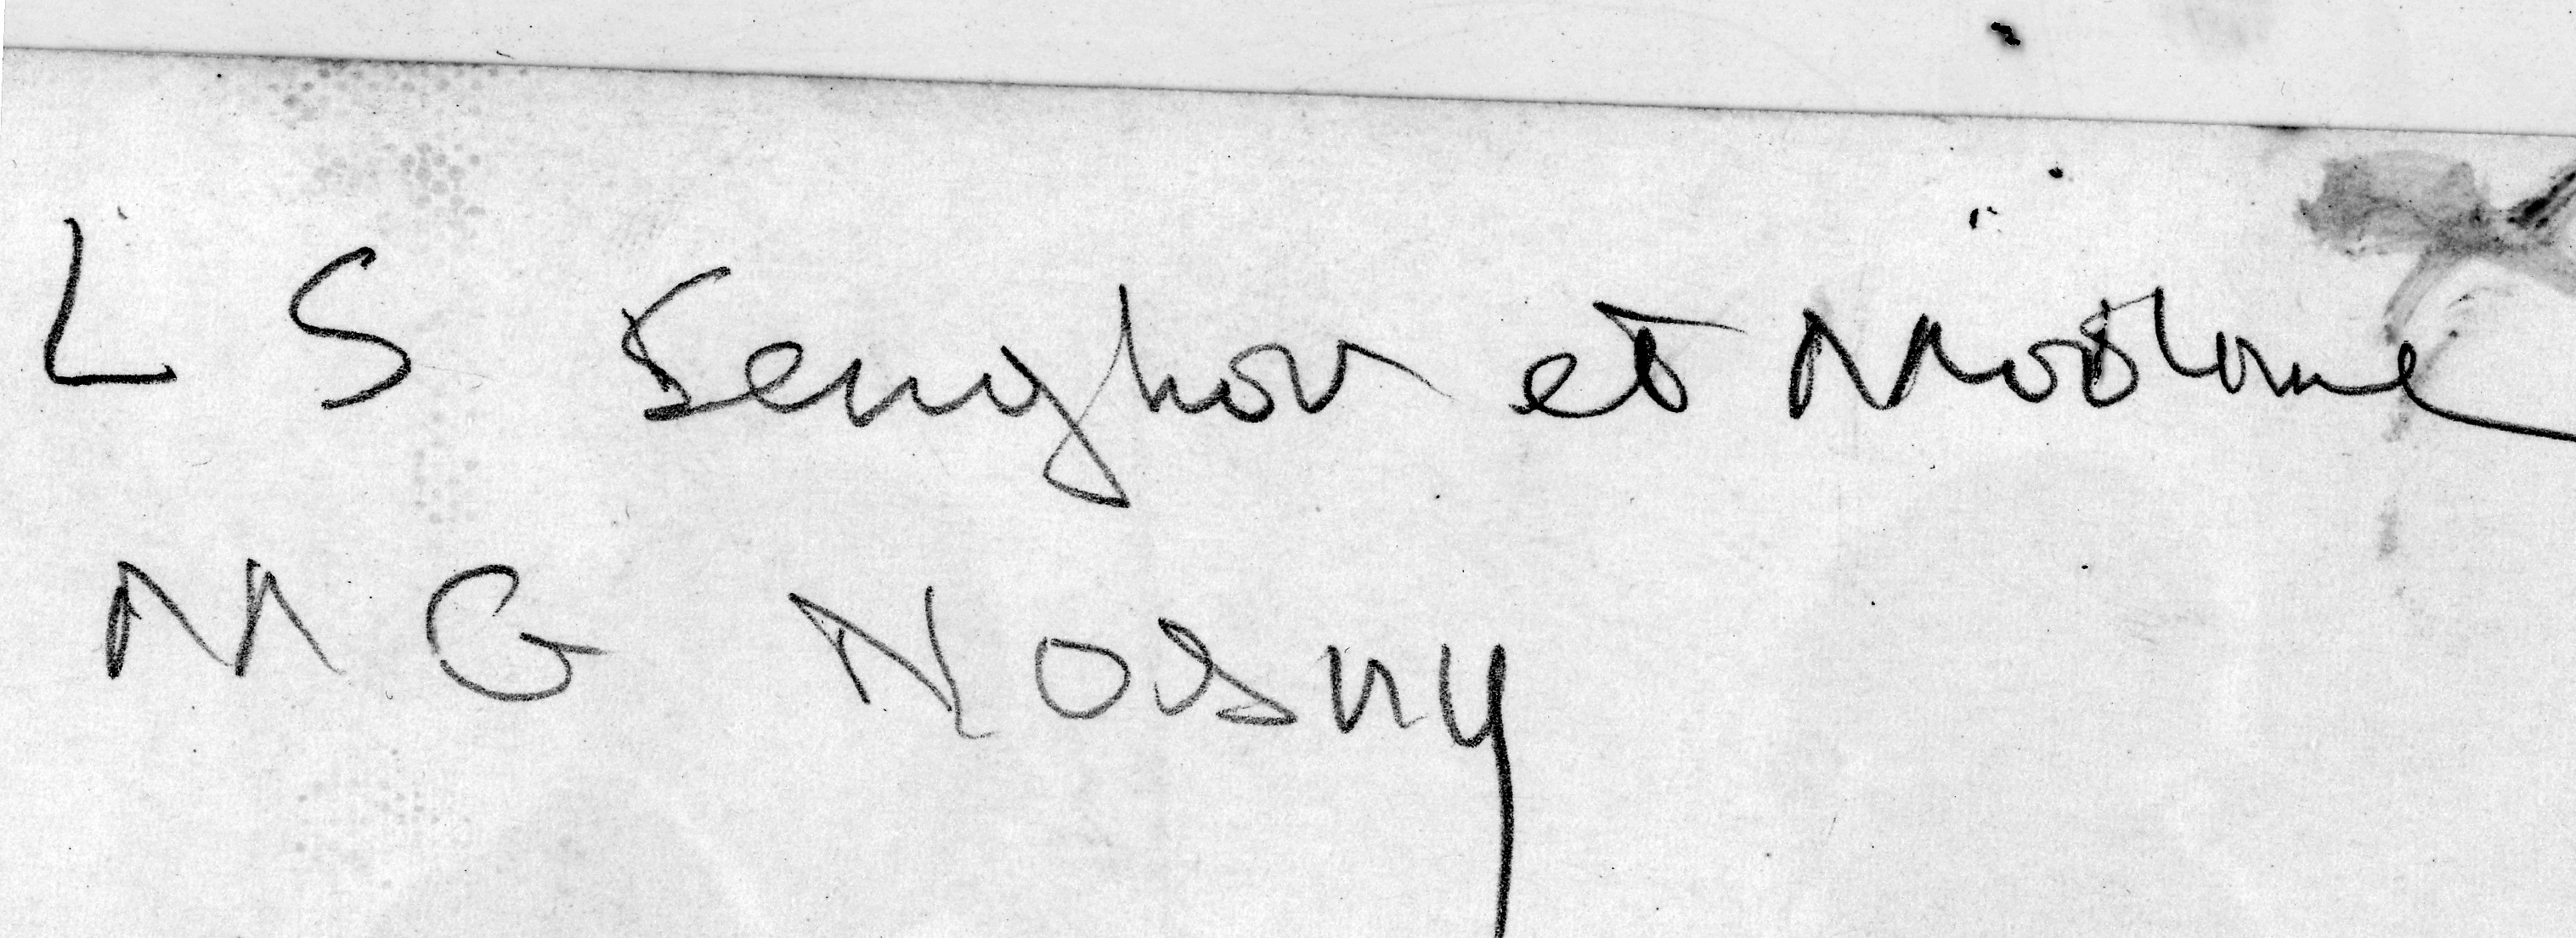 L S Senghor et Madame
M G Nosny